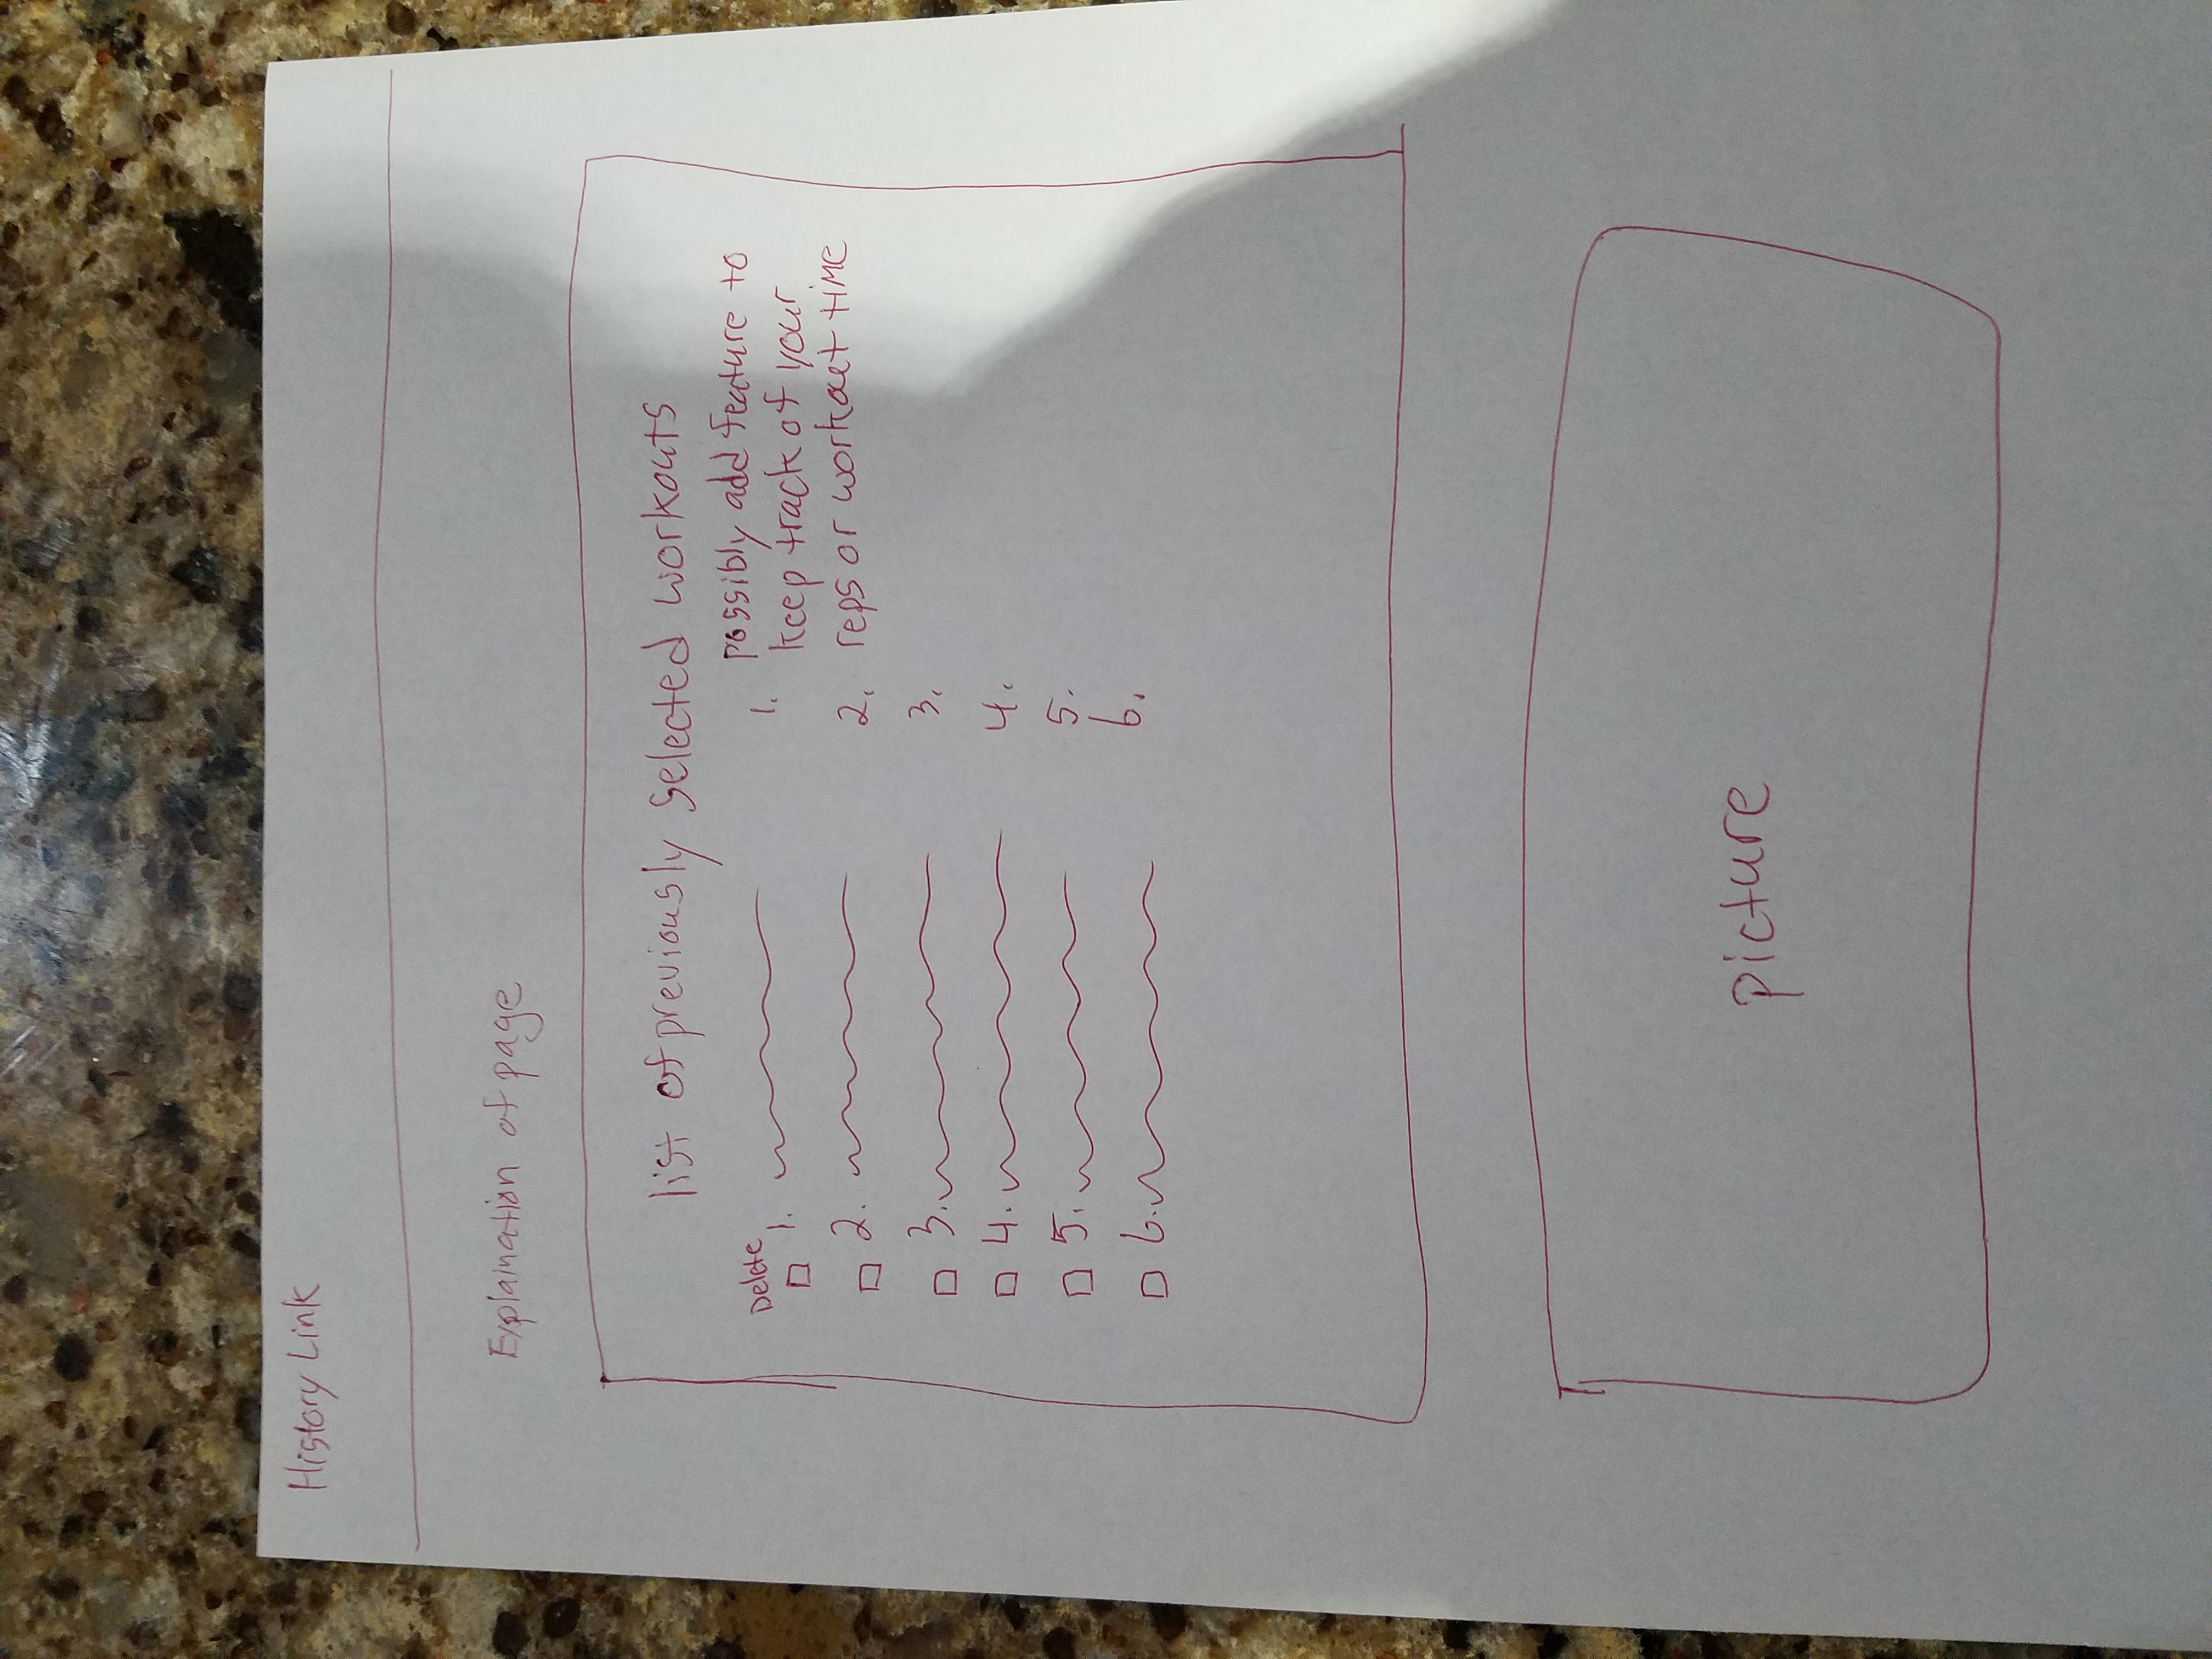 History Link
Explaination of page
list of previously selected workouts
Delete
1.
2.
3.
4.
5.
6.
1. possibly add feature to
keep track of your
2. reps or workout time
3.
4.
5.
6.
picture